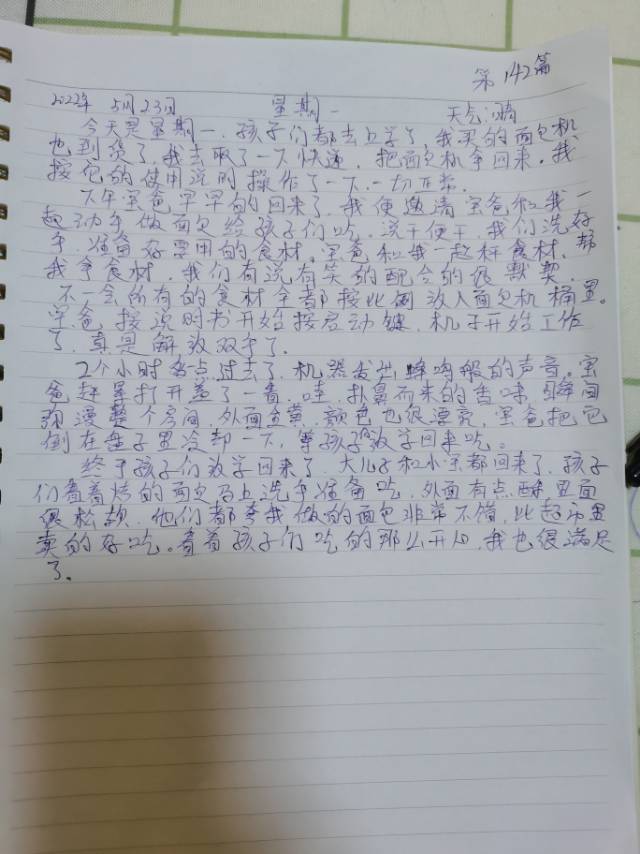 第142篇
2022年 5月23日 星期一 天气:晴
今天是星期一，孩子们都去上学了，我买的面包机
也到货了，我去取了一下快递，把面包机拿回来，我
按它的使用说明操作了一下，一切正常。
下午宝爸早早的回来了，我便邀请宝爸和我一
起动手做面包给孩子们吃，说干便干，我们洗好
手，准备好要用的食材，宝爸和我一起秤食材，帮
我拿食材，我们有说有笑的配合的很默契，
不一会所有的食材全都按比例放入面包机桶里。
宝爸按说明书开始按启动键，机子开始工作
了，真是解放双手了。
2个小时多点过去了，机器发出蜂鸣般的声音，宝
爸赶紧打开盖了一看，哇，扑鼻而来的香味，瞬间
弥漫整个房间，外面金黄，颜色也很漂亮，宝爸把它
倒在盘子里冷却一下，等孩子放学回来吃。
终于孩子们放学回来了，大儿子和小宝都回来了，孩子
们看着烤的面包马上洗手准备吃，外面有点酥里面
很松软，他们都夸我做的面包非常不错，比超市里
卖的好吃。看着孩子们吃的那么开心，我也很满足
了。